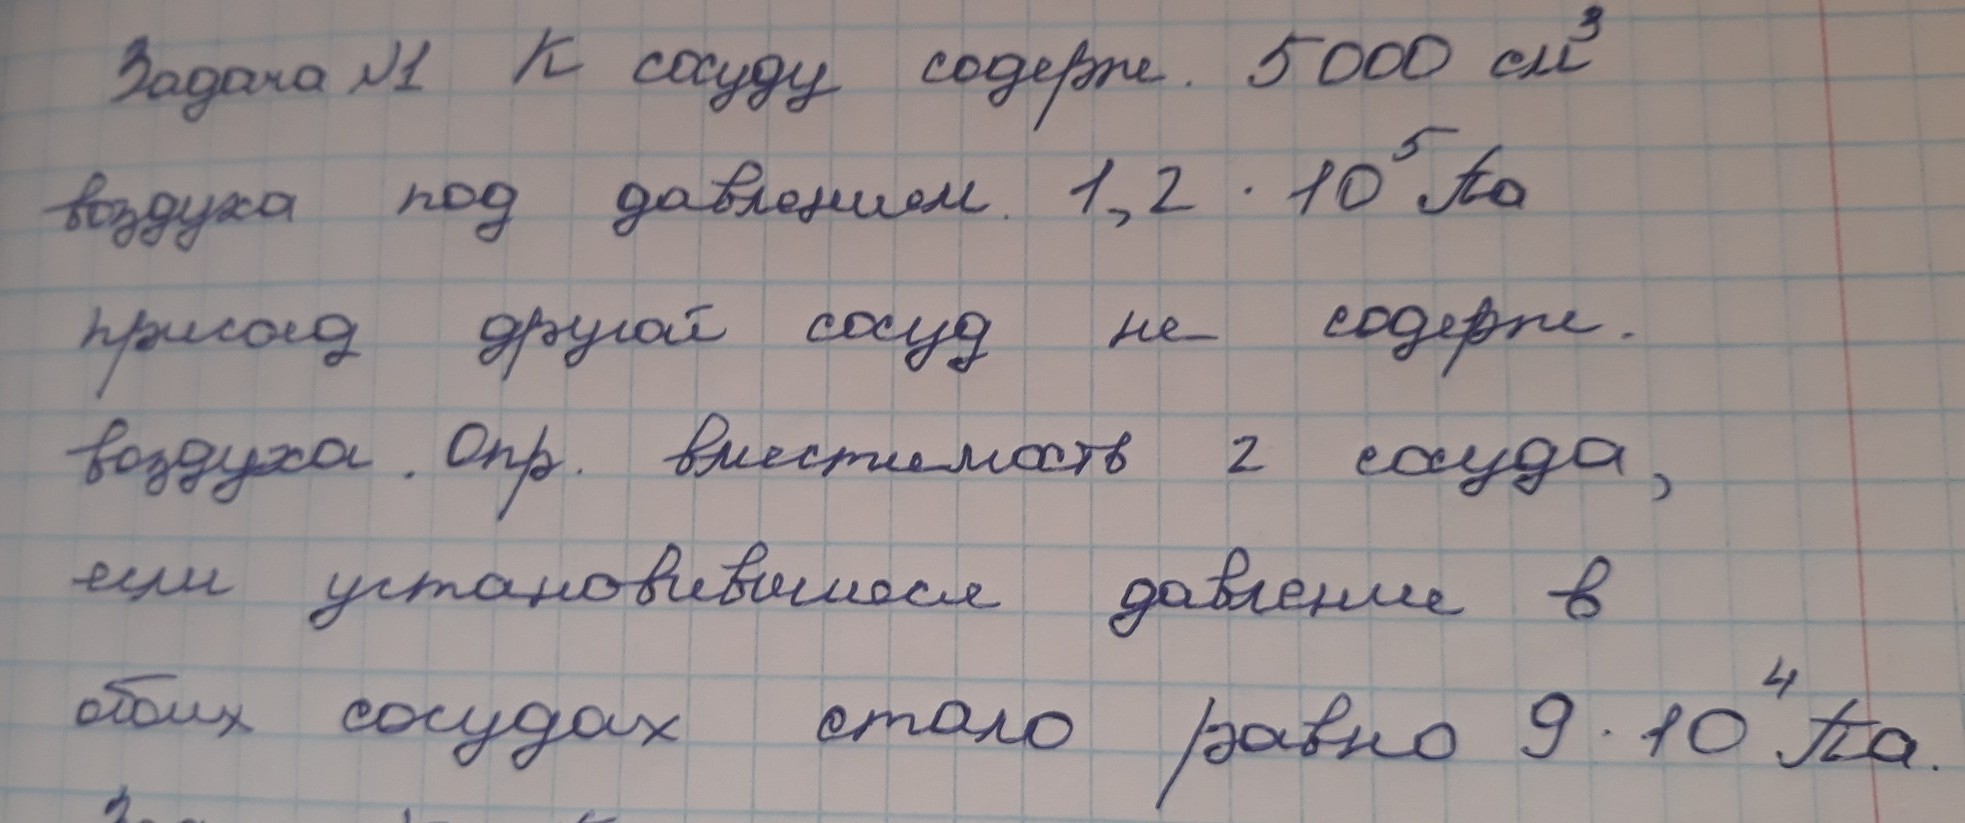 Задача №1 К сосуду содерж. 5000 см³
воздуха под давлением. 1,2 · 10⁵ Па
присоед другой сосуд не содерж.
воздуха. Опр. вместимость 2 сосуда,
если установившиеся давление в
обоих сосудах стало равно 9 · 10⁴ Па.